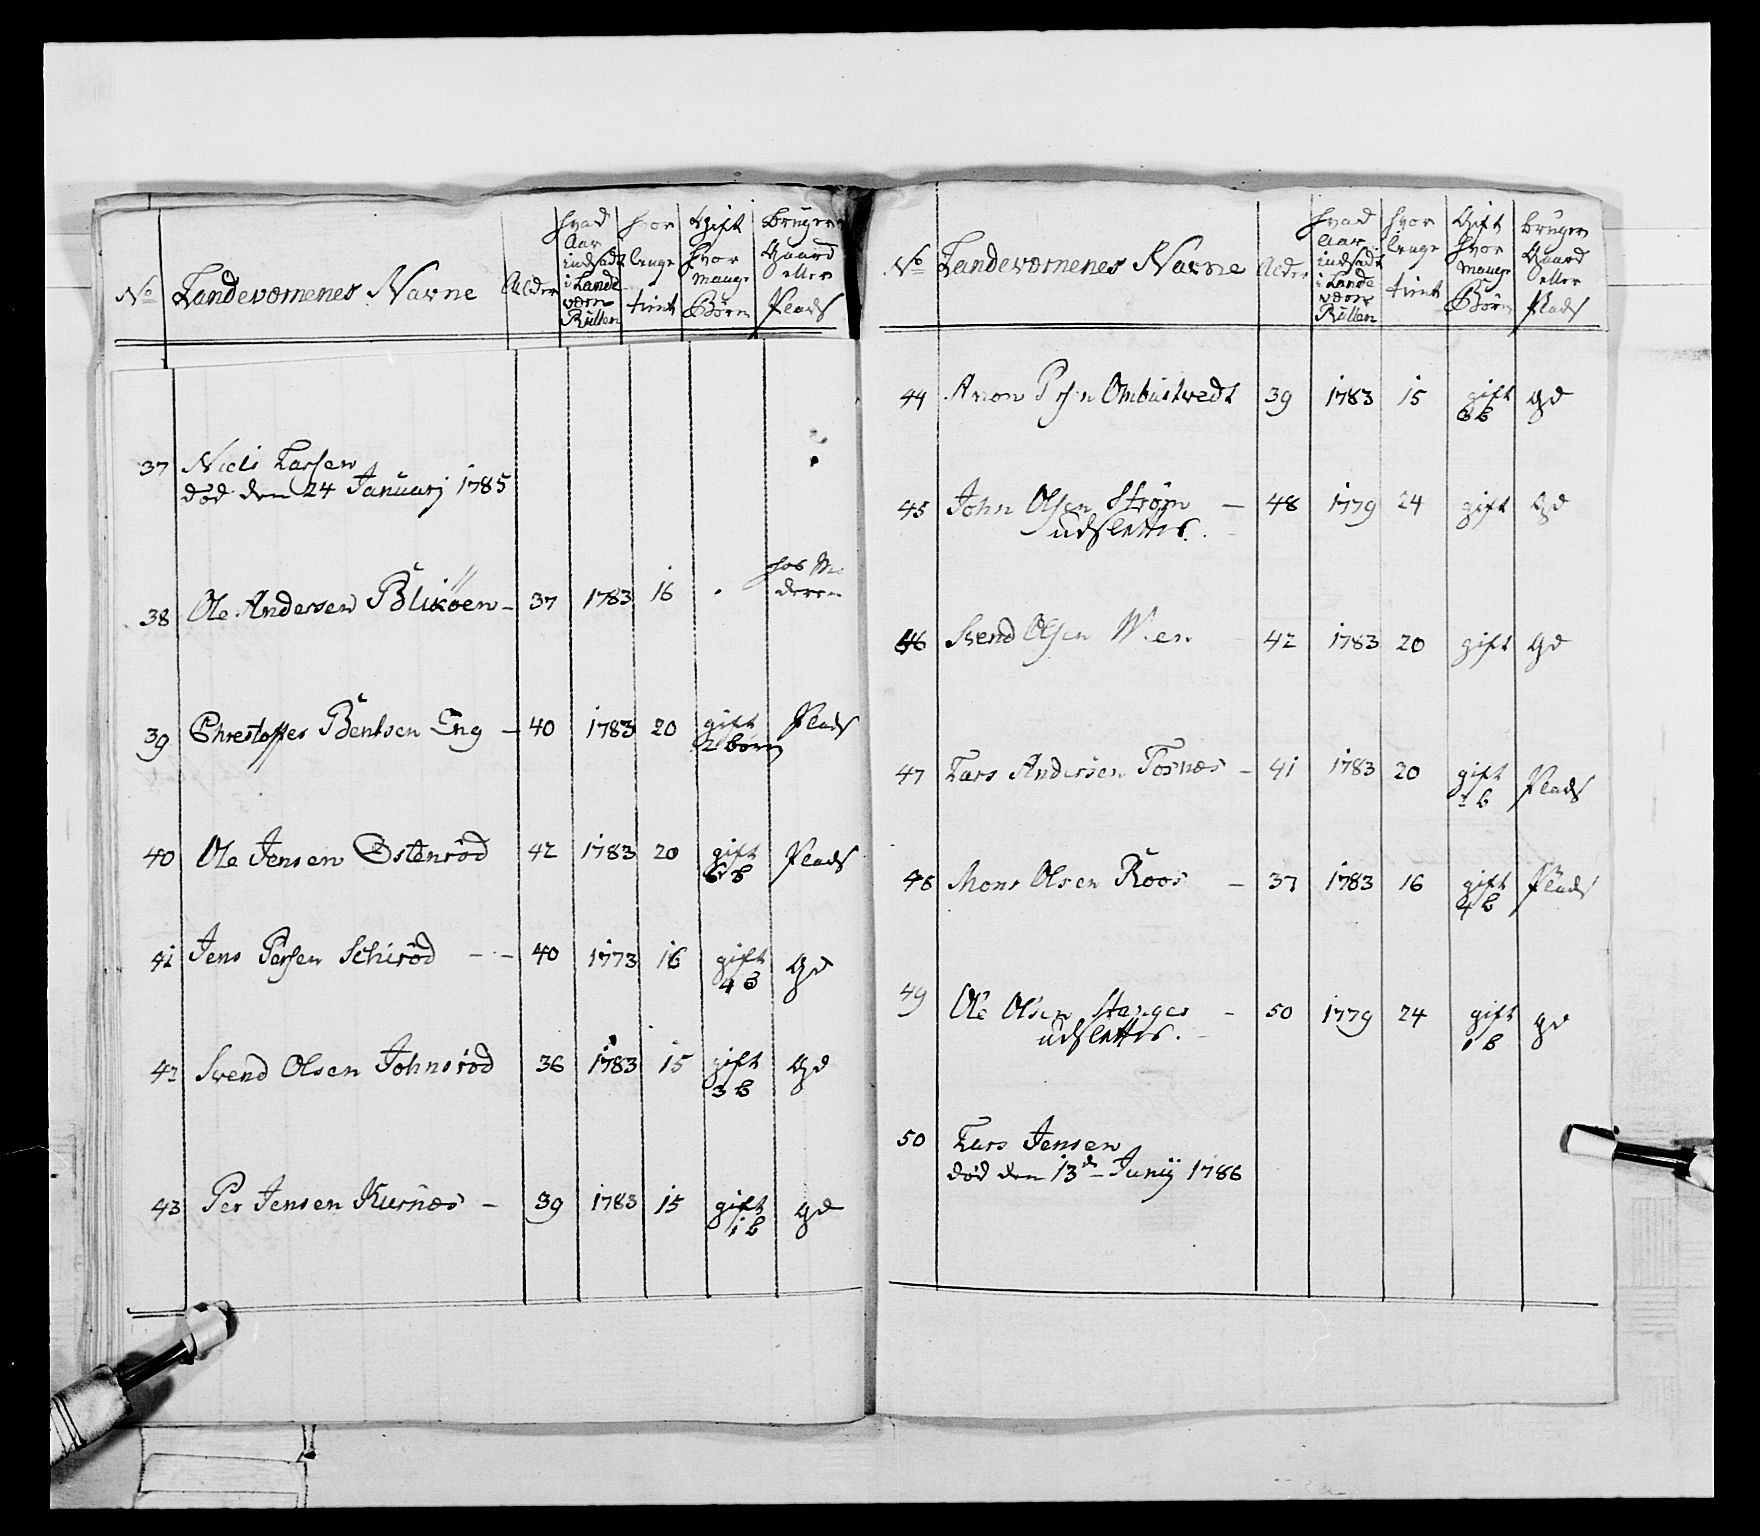 No Landevœrnenes Navne Alder hvad Aar indsadt i Lande værn Rullen hvor længe tient Gift hvor mange Börn bruger Gaard eller Plads
37 Niels Larsen
död den 24 Januarj 1785
38 Ole Andersen Bliköen - 37 1783 16 . hos
deren
39 Chrestoffer Bentsen Eng - 40 1783 20 gift Plads
2 börn
40 Ole Jensen Östenröd 42 1783 20 gift Plads
6 b
41 Jens Persen Schiröd - - 40 1773 16 gift gd
4 B
42 Svend Olsen Johnsröd 36 1783 15 gift gd
3 B
43 Per Jensen Kurnæs - 39 1783 15 gift gd
1 b
No Landevœrnenes Navne Alder hvad Aar indsadt i Lande værn Rullen hvor længe tient Gift hvor mange Börn bruger Gaard eller Plads
44 Aron Prs:n Ombustvedt 39 1783 15 gift gd
3 b
45 John Olsen Ström - 48 1779 24 gift gd
udslettes.
46 Svend Olsen - 42 1783 20 gift gd
47 Lars Andersen Tosnæs - 41 1783 20 gift Plads
b
48 Mons Olsen Roos - 37 1783 16 gift Plads
4 b
49 Ole Olsen Stanger - 50 1779 24 gift gd
udslettes. 1 b
50 Lars Jensen
död den 13de Junij 1786